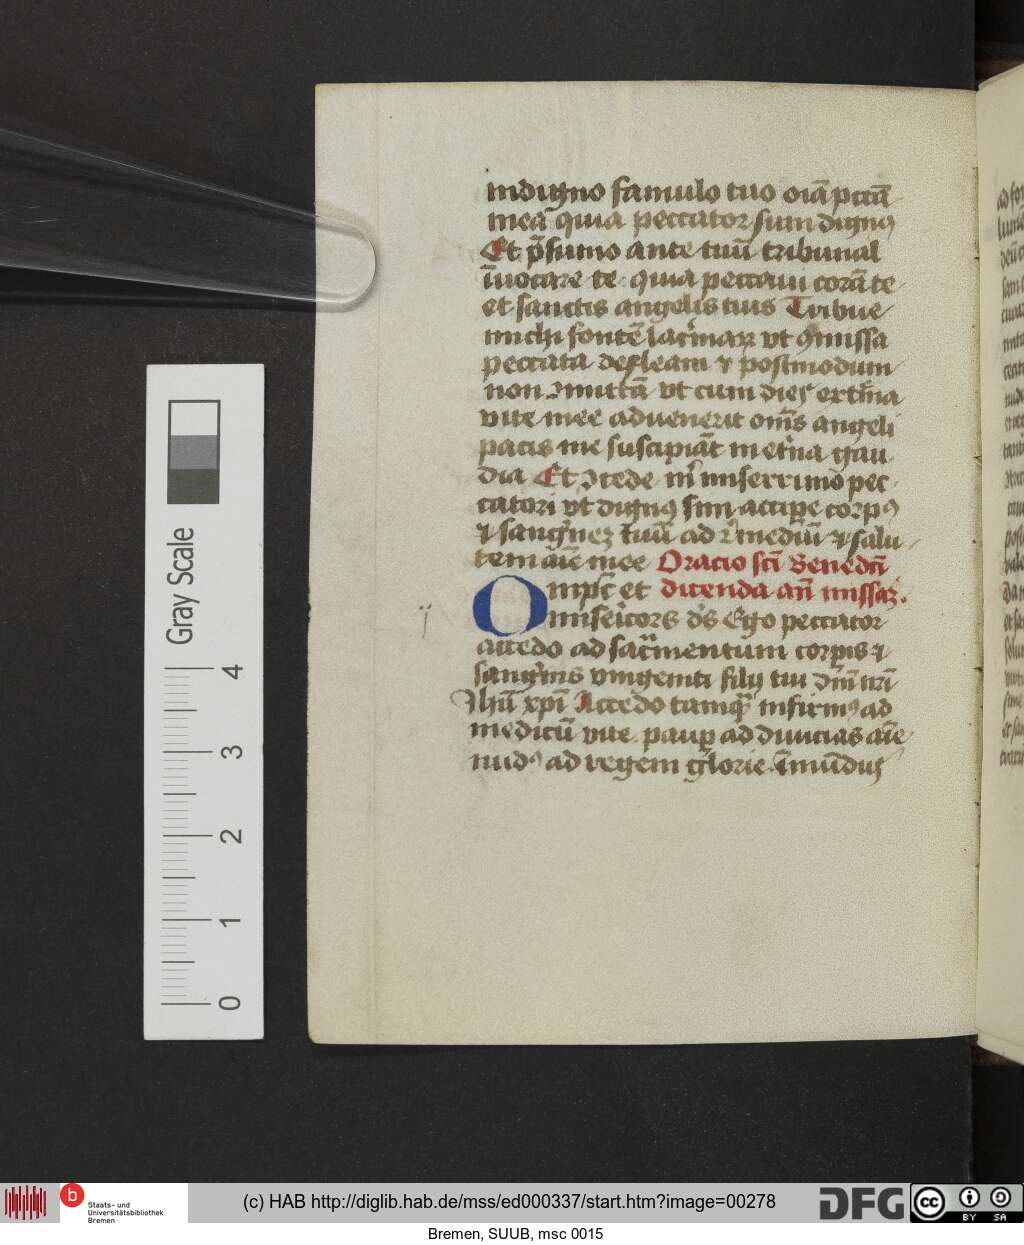 indigno famulo tuo oīa pccā
mea quia peccator sum dignꝰ
Et p̄sumo ante tuū tribunal
īuocare te quia peccaui corā te
et sanctis angelis tuis Tribue
michi fontē lacrimaꝝ vt ꝯmissa
peccata defleam ⁊ postmodum
non ꝯmittā vt cum dies extͥma
vite mee aduenerit om̄s angeli
pacis me suscipiāt in etͥna gau
dia Et ꝯcede mͥ miserrimo pec
catori vt dignꝰ sim accipe corpꝰ
⁊ sanguineꝫ tuū ad rͥmediū ⁊ salu
tem aīe mee Oracio scī Benedcī
Omps̄ et dicenda an̄ missaꝫ.
misericors ds̄ Ego peccator
ij
accedo ad sacramentum corpis ⁊
sanguinis vnigeniti filij tui dn̄i nr̄i
Jhū xpī Accedo tamqͣ infirmꝰ ad
medicū vite paup ad diuicias aīe
nudꝰ ad regem glorie īmūdus
Gray Scale
4
3
2
1
0
b
Staats- und
Universitätsbibliothek
Bremen
(c) HAB http://diglib.hab.de/mss/ed000337/start.htm?image=00278
DFG
cc
BY SA
Bremen, SUUB, msc 0015